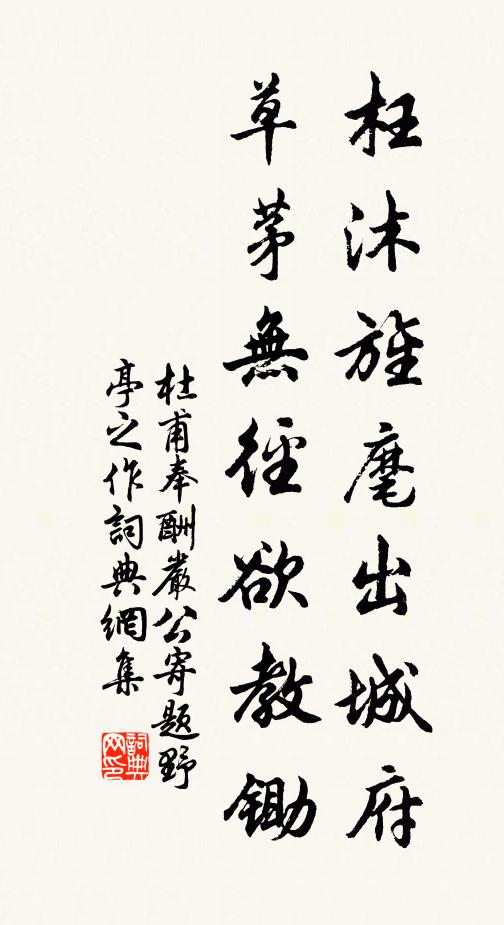 枉沐旌麾出城府
草茅無徑欲教鋤
杜甫奉酬嚴公寄題野
亭之作詞典網集
詞典
网印